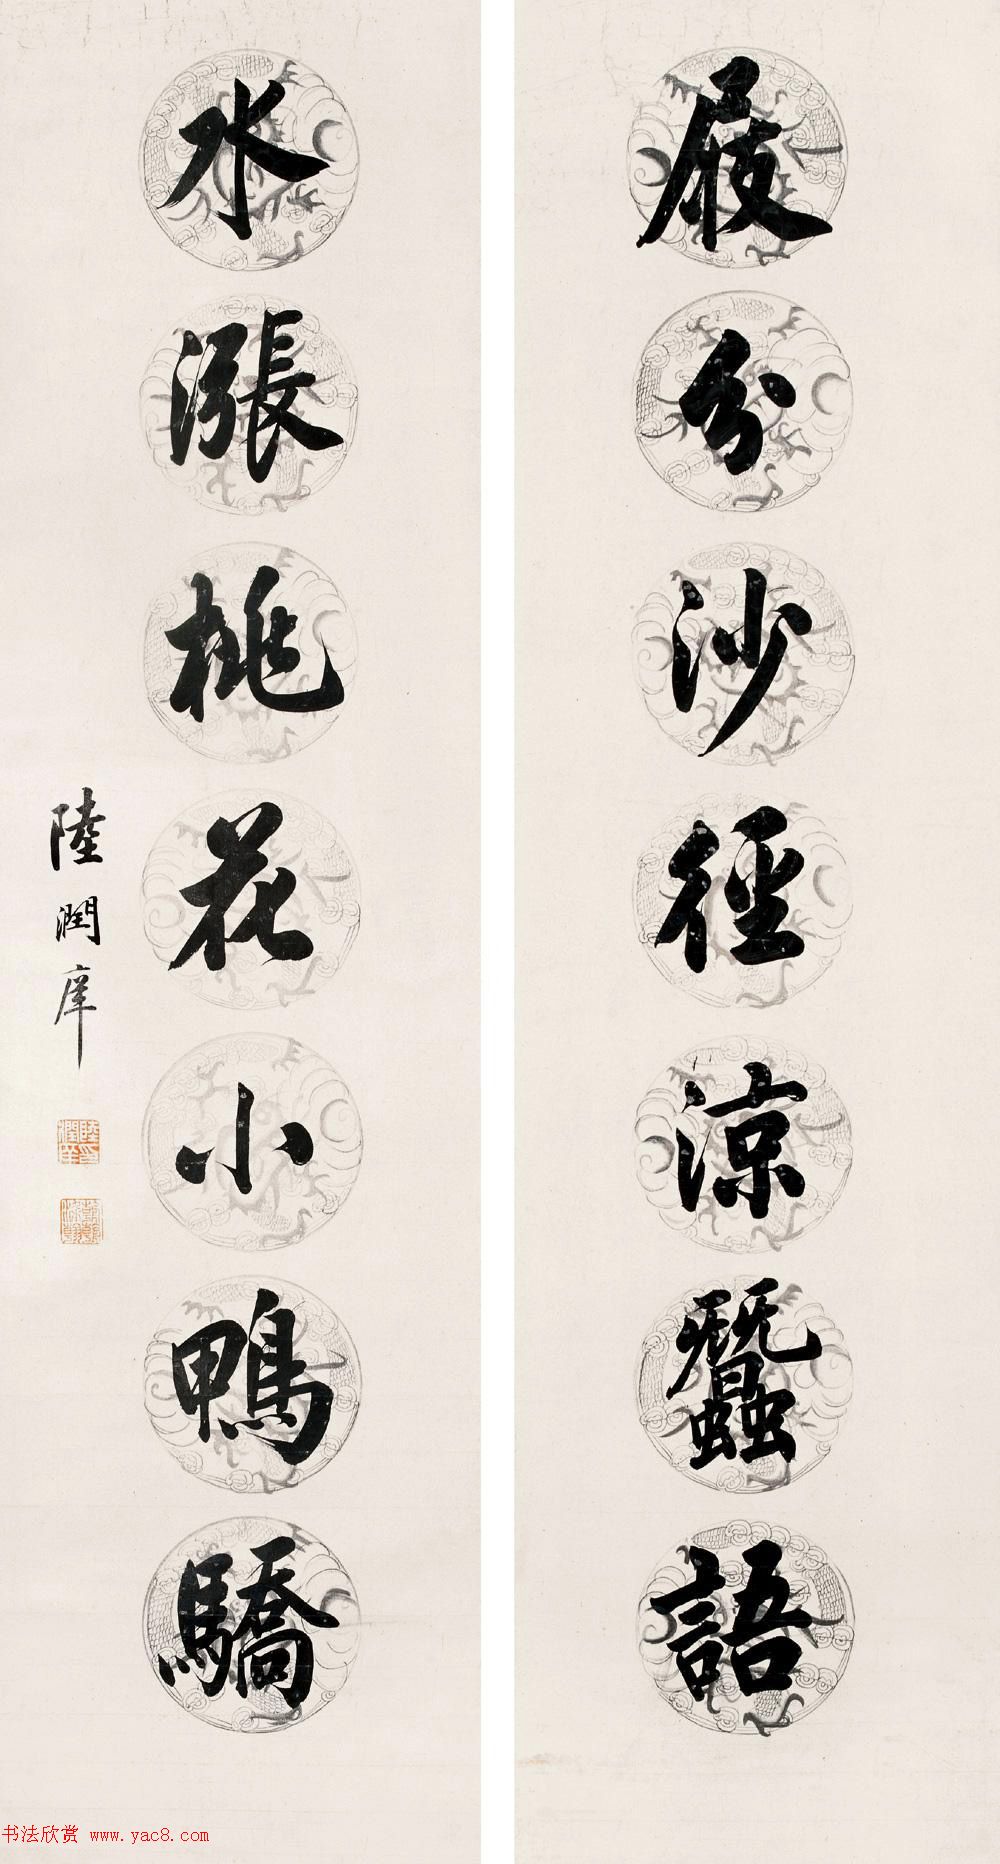 屐分沙徑涼蠶語
水漲桃花小鴨驕
陸潤庠
陸印潤庠
书法欣赏 www.yac8.com